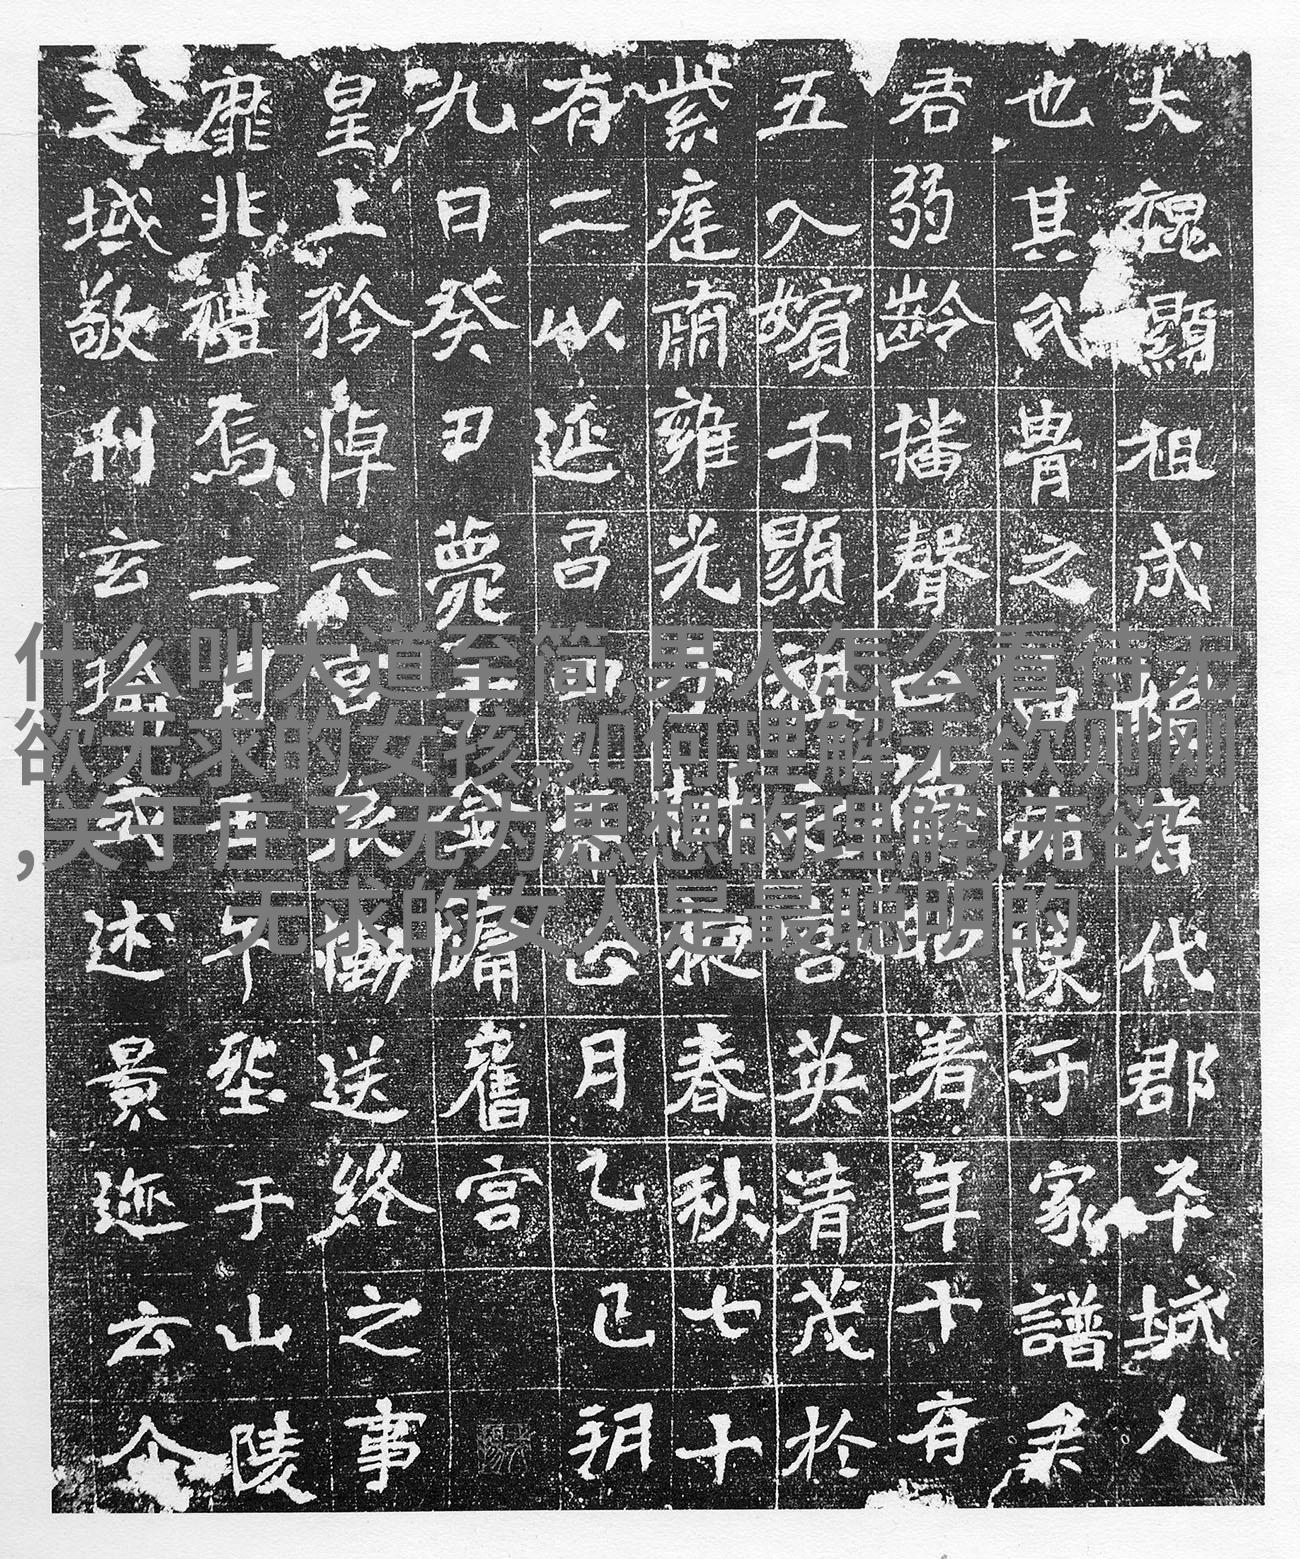 大魏顯祖成嬪者代郡平城人
也其氏胄之由備陳于家譜矣
君弱齡播聲著年十有
五入嬪于顯祖言英清茂於
紫庭肅雍光于掖春秋七十
有二以延昌四年正月乙巳朔
九日癸丑薨于金墉舊宮
皇上矜悼六宮哀慟送終之事
靡非禮焉二月午窆于山陵
之域敬刊玄述景迹云尒
什么叫大道至简,男人怎么看待无
欲无求的女孩,如何理解无欲则刚
,关于庄子无为思想的理解,无欲
无求的女人是最聪明的